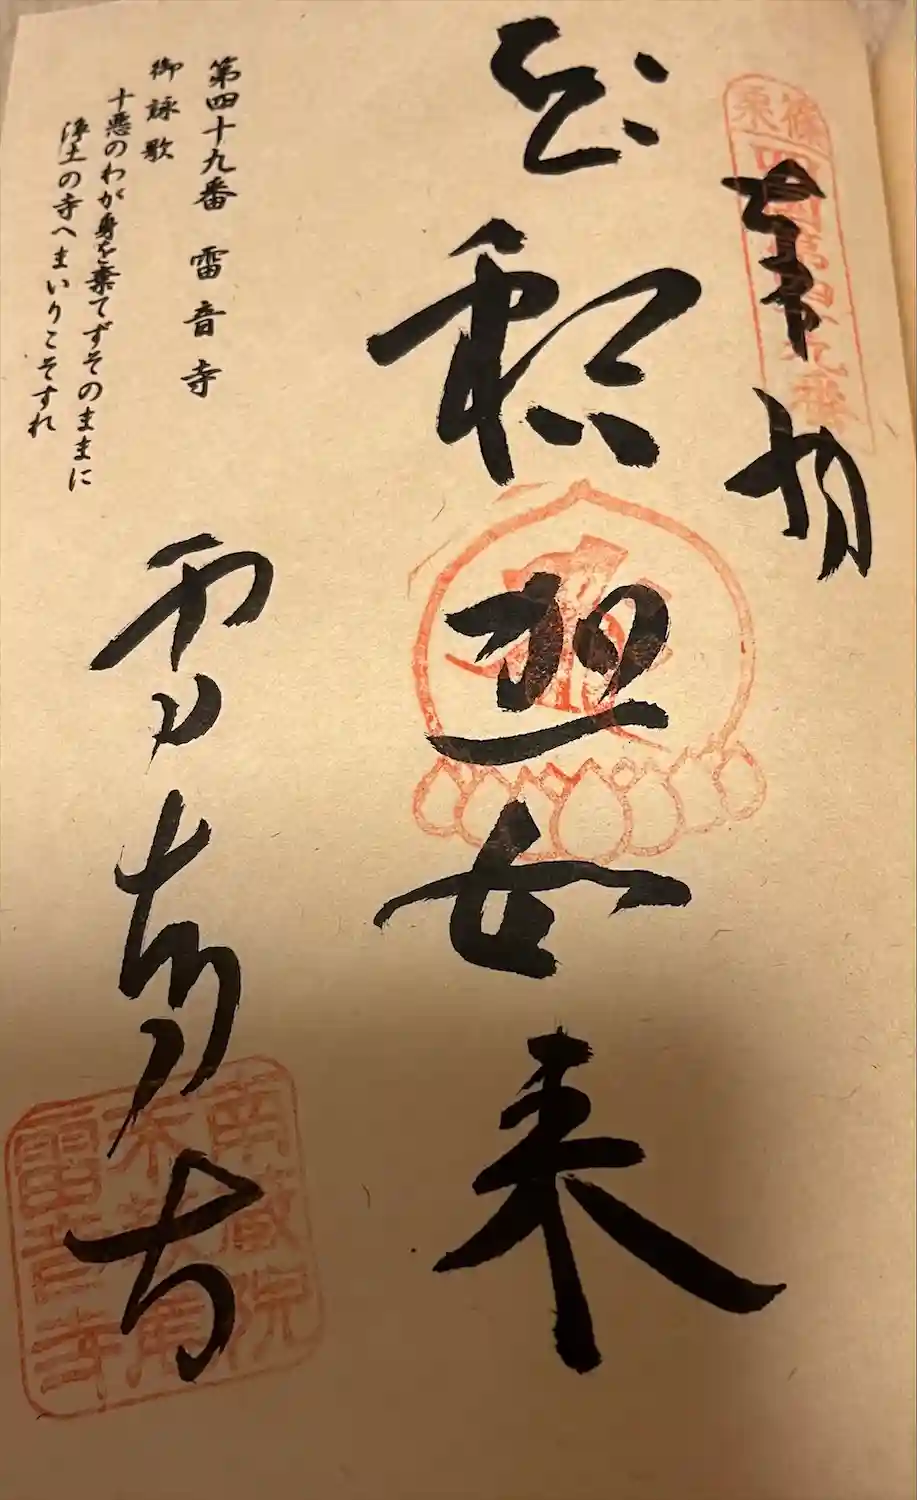 篠栗
四国第四十九番
奉納
釈迦如来
雷音寺
第四十九番 雷音寺
御詠歌
十悪のわが身を棄てずそのままに
浄土の寺へまいりこそすれ
南蔵院
雷音寺